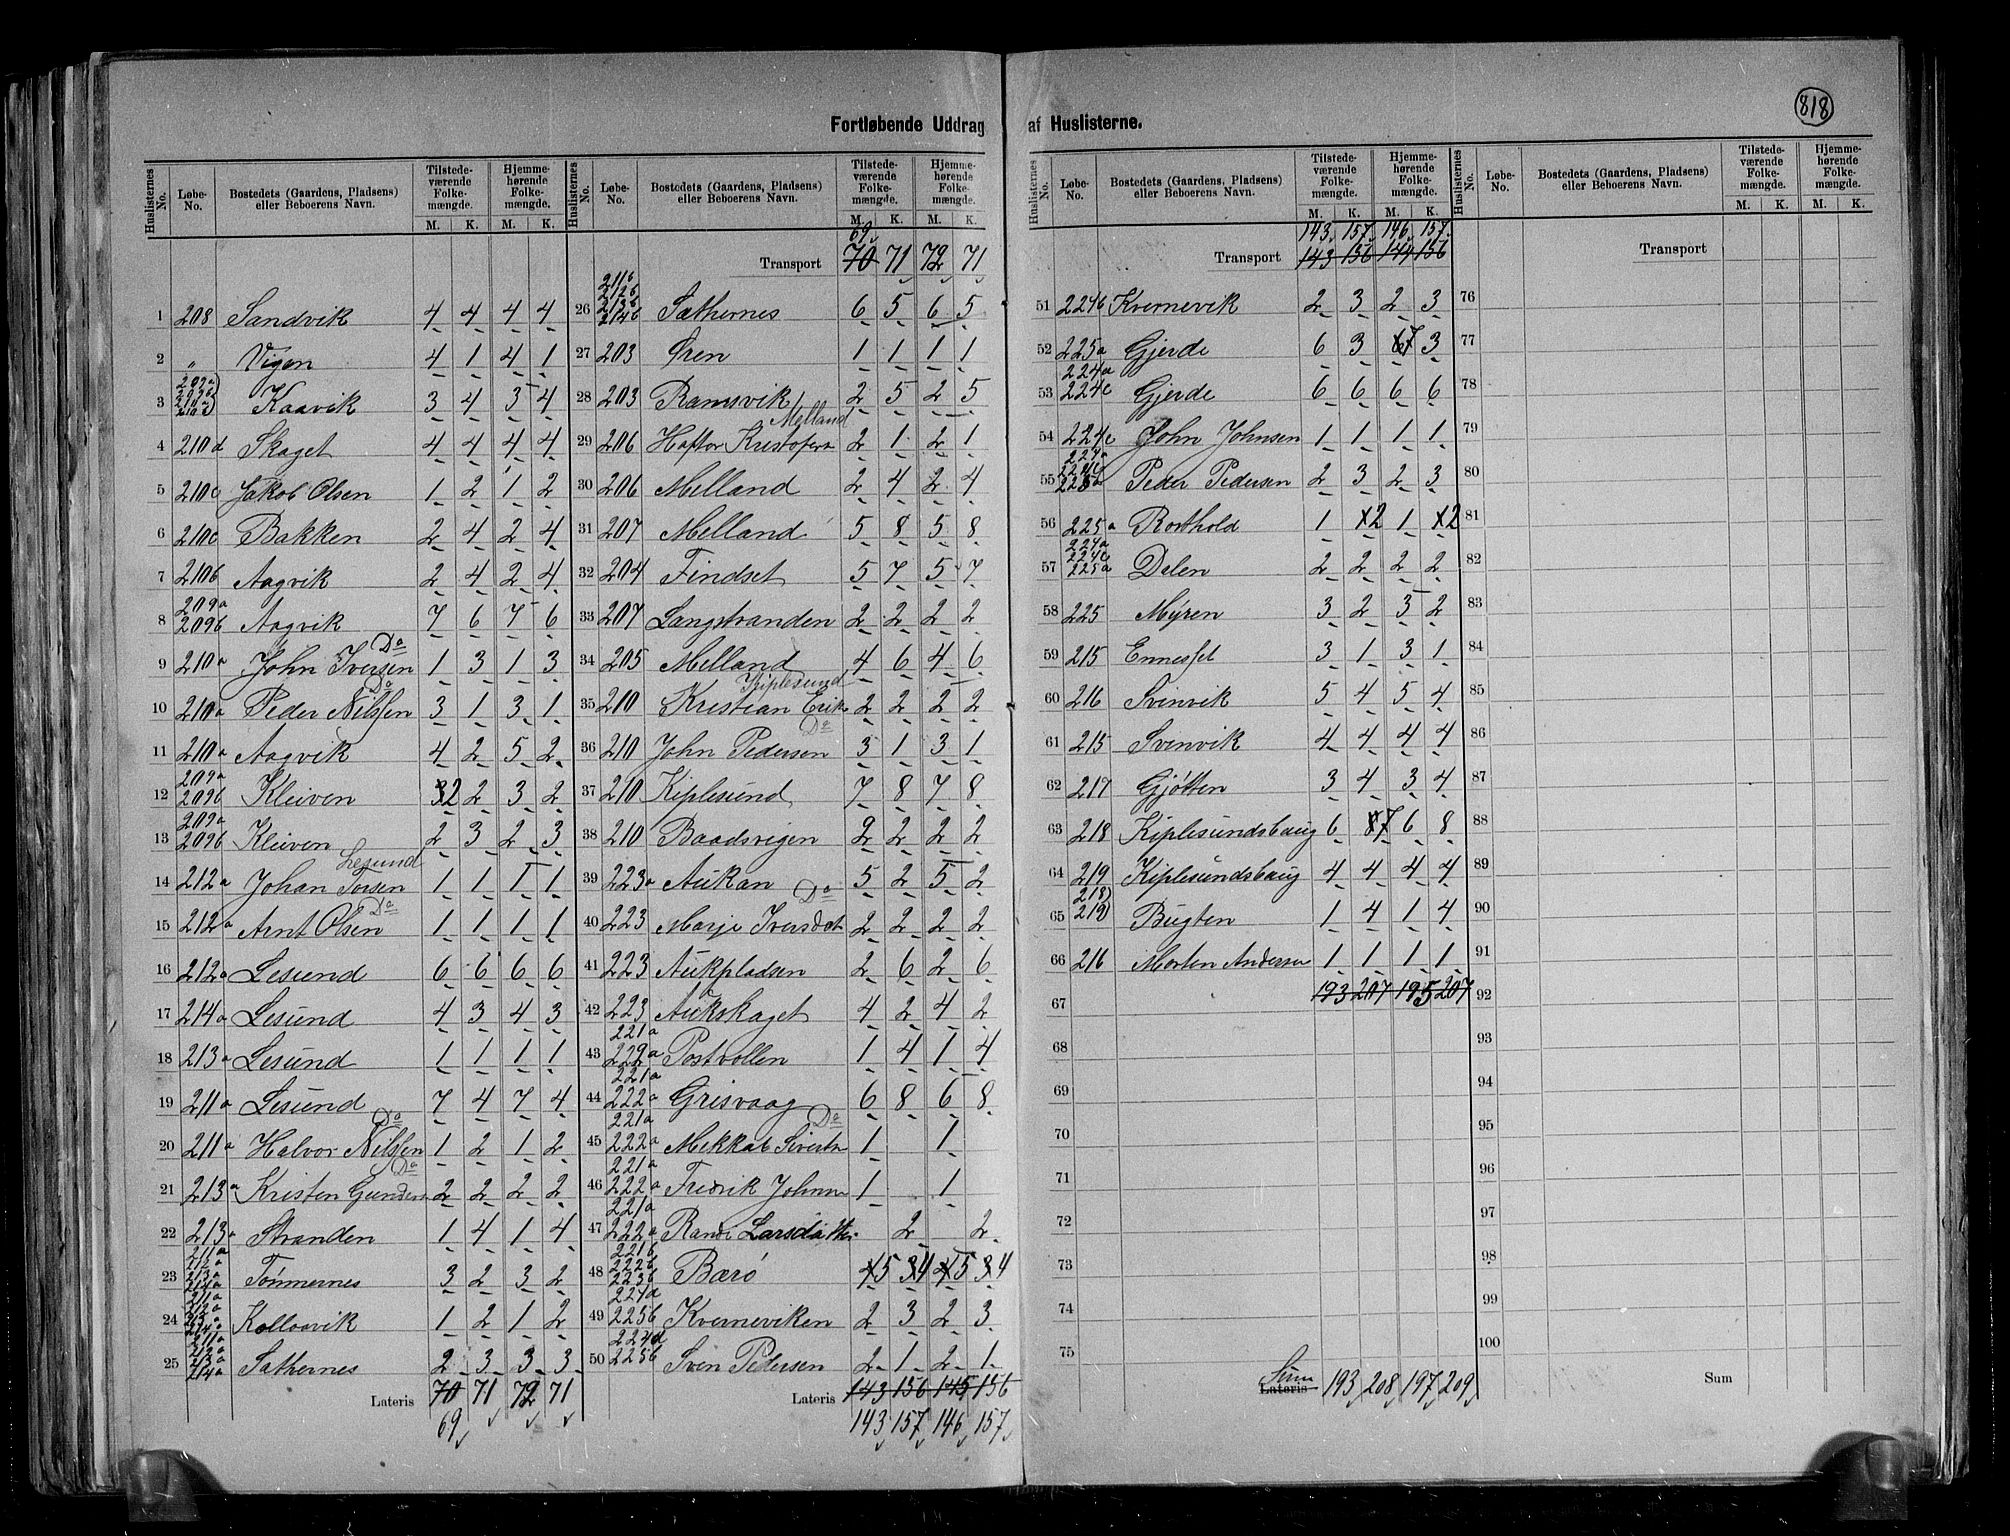 818
Fortløbende Uddrag af Huslisterne.
Huslisternes No. Løbe-No. Bostedets (Gaardens, Pladsens) eller Beboerens Navn. Tilstedeværende Folkemængde. Hjemmehørende Folkemængde. M. K. M. K.
1 208 Sandvik 4 4 4 4
2 " Vigen 4 1 4 1
3 Kaavik 3 4 3 4
4 210d Skaget 4 4 4 4
5 210c Jakob Olsen 1 2 1 2
6 210c Bakken 2 4 2 4
7 210b Aagvik 2 4 2 4
8 209a 209b Aagvik 7 6 7 6
9 210a John Iversen Do 1 3 1 3
10 210a Peder Nilssen Do 3 1 3 1
11 210a Aagvik 4 2 5 2
12 209a 209b Kleiven 3 2 2 3 2
13 209a 209b Kleiven 2 3 2 3
14 212a Johan Torsen Lesund 1 1 1 1
15 212a Arnt Olsen Do 1 1 1 1
16 212a Lesund 6 6 6 6
17 214a Lesund 4 3 4 3
18 213a Lesund 1 1 1 1
19 211a Lesund 7 4 7 4
20 211a Halvor Nilssen Do 1 2 1 2
21 213a Kristen Gunders Do 2 2 2 2
22 213a Stranden 1 4 1 4
23 211a 212a 213a 214a Tømmernes 3 2 3 2
24 211a 212a 213a 214a Kollaavik 1 2 1 2
25 211a 212a 213a 214a Sathernes 2 3 3 3
Lateris 70 71 72 71
69
Huslisternes No. Løbe-No. Bostedets (Gaardens, Pladsens) eller Beboerens Navn. Tilstedeværende Folkemængde. Hjemmehørende Folkemængde. M. K. M. K.
69
Transport 70 71 72 71
26 211b 212b 213b 214b Sathernes 6 5 6 5
27 203 Øren 1 1 1 1
28 203 Ramsvik 2 5 2 5
29 206 Haftor Kristofers Melland 2 1 2 1
30 206 Melland 2 4 2 4
31 207 Melland 5 8 5 8
32 204 Findset 5 7 5 7
33 207 Langstranden 2 2 2 2
34 205 Melland 4 6 4 6
35 210 Kristian Erik Kiplesund 2 2 2 2
36 210 John Pedersen Do 3 1 3 1
37 210 Kiplesund 7 8 7 8
38 210 Baadsvigen 2 2 2 2
39 223a Aukan 5 2 5 2
40 223 Marje Iversdot Do 2 2 2 2
41 223 Aukpladsen 2 6 2 6
42 223 Aukskaget 4 2 4 2
43 221a 222a Postvollen 1 4 1 4
44 221a 222a Grisvaag 6 8 6 8
45 221a 222a Mekkal Sivertn Do 1 1
46 221a 222a Fredrik Johnsn 1 1
47 221a 222a Randi Larsdatter 2 2
48 221b 222b 223b Bærø 4 5 3 4 4 5 3 4
49 224d 225b Kverneviken 2 3 2 3
50 224d 225b Sven Pedersen 2 1 2 1
Lateris 143 156 145 156
143 157 146 157
Huslisternes No. Løbe-No. Bostedets (Gaardens, Pladsens) eller Beboerens Navn. Tilstedeværende Folkemængde. Hjemmehørende Folkemængde. M. K. M. K.
143 157 146 157
Transport 143 156 144 156
51 224b Kvernevik 2 3 2 3
52 225a Gjerde 6 3 6 7 3
53 224a 224c Gjerde 6 6 6 6
54 224c John Johnsen 1 1 1 1
55 224a 224c 225a Peder Pedersen 2 3 2 3
56 225a Rosthold 1 1 2 1 1 2
57 224a 224c 225a Dalen 2 2 2 2
58 225 Myren 3 2 3 2
59 215 Ennesset 3 1 3 1
60 216 Svinvik 5 4 5 4
61 215 Svinvik 4 4 4 4
62 217 Gjøtten 3 4 3 4
63 218 Kiplesundshaug 6 8 7 6 8
64 219 Kiplesundshaug 4 4 4 4
65 218 219 Bugten 1 4 1 4
66 216 Morten Andersen 1 1 1 1
67 193 207 195 207
68
69
70
71
72
73
74
75
Lateris Sum 193 208 197 209
Huslisternes No. Løbe-No. Bostedets (Gaardens, Pladsens) eller Beboerens Navn. Tilstedeværende Folkemængde. Hjemmehørende Folkemængde. M. K. M. K.
Transport
76
77
78
79
80
81
82
83
84
85
86
87
88
89
90
91
92
93
94
95
96
97
98
99
100
Sum